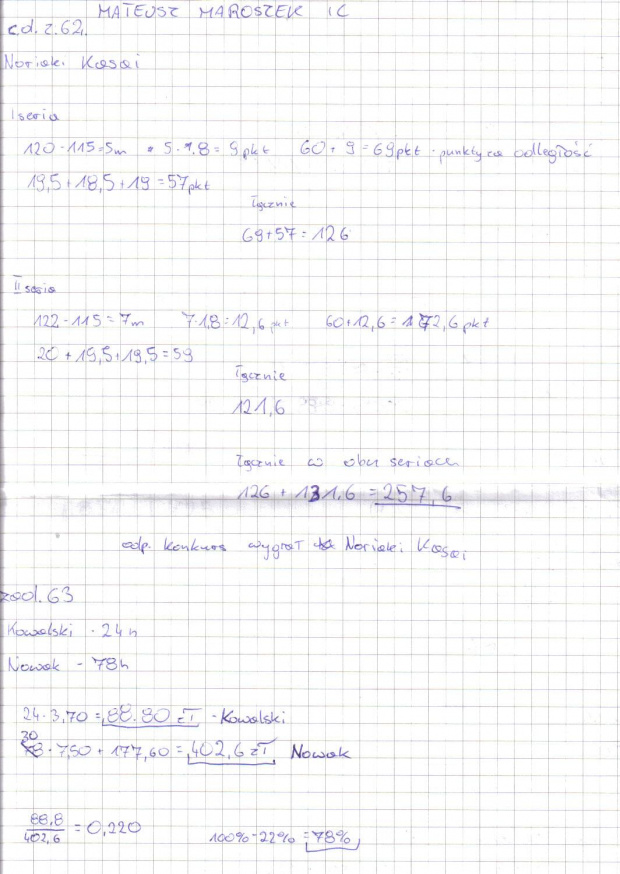 MATEUSZ MAROSZEK IC
c.d. z.62.
Noriaki Kasai
I seria
120-115=5m 5·1,8=9pkt 60+9=69pkt - punkty za odległość
19,5+18,5+19=57pkt
łącznie
69+57=126
II seria
122-115=7m 7·1,8=12,6pkt 60+12,6=72,6pkt
20+19,5+19,5=59
łącznie
121,6
łącznie w obu seriach
126+131,6=257,6
odp. konkurs wygrał Noriaki Kasai
zad. 63
Kowalski - 24h
Nowak - 78h
24·3,70=88.80 zł - Kowalski
30·7,50+177,60=402,6 zł Nowak
88,8/402,6=0,220 100%-22%=78%